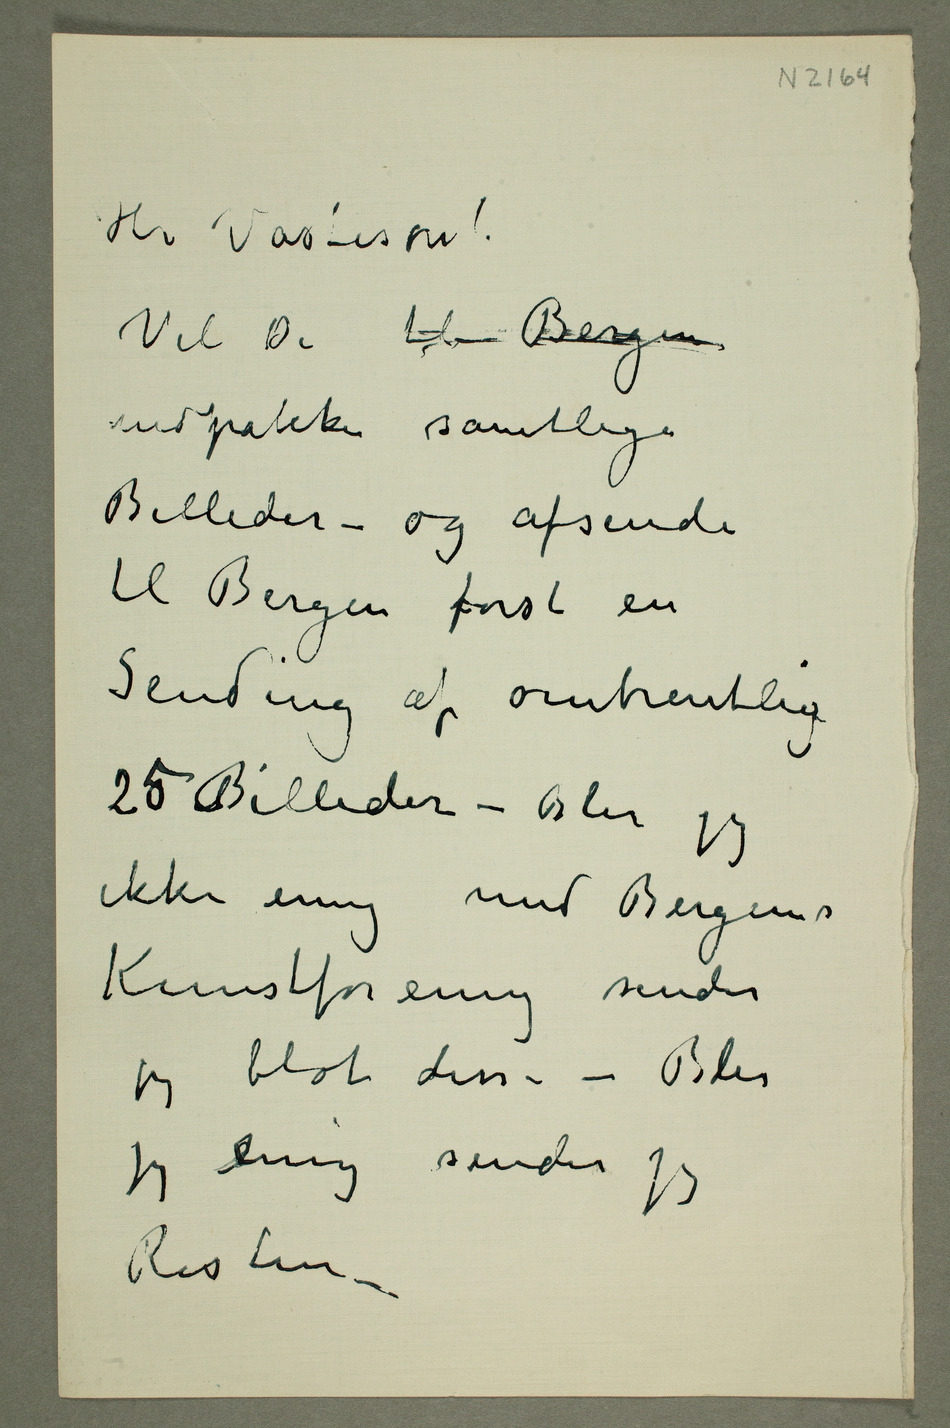 N 2164
Hr
Vil De ~~til Bergen~~
indpakke samtlige
Billeder – og afsende
til Bergen først en
Sending af omtrentlig
25 Billeder – Bler jeg
ikke enig med Bergens
Kunstforening sender
jeg blot disse – Bler
jeg enig sender jeg
Resten –